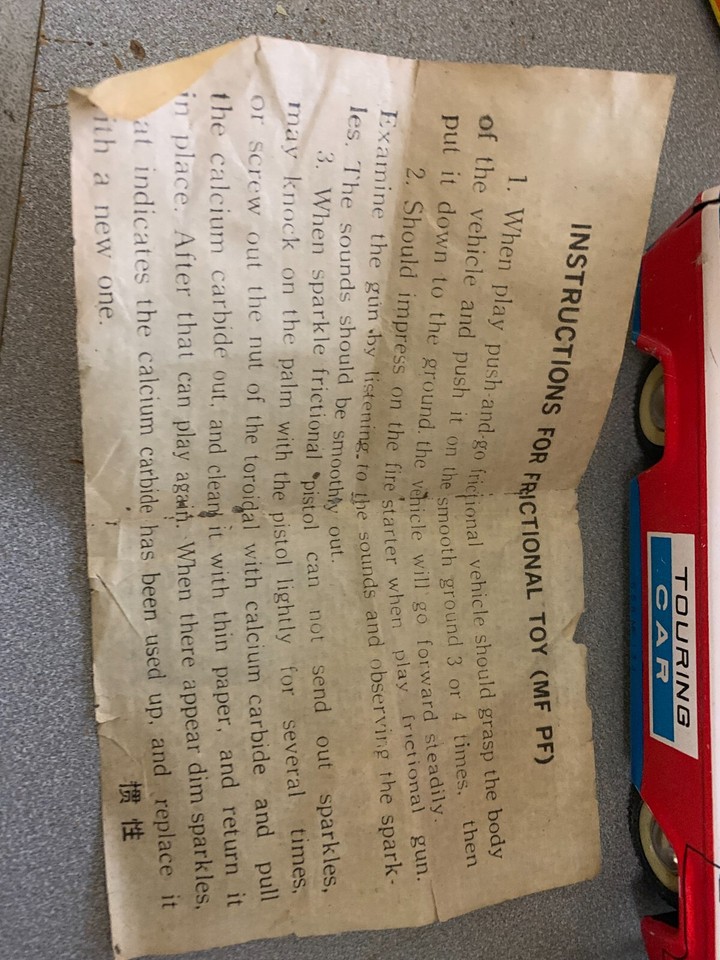 INSTRUCTIONS FOR FRICTIONAL TOY (MF PF)
1. When play push-and-go frictional vehicle should grasp the body
of the vehicle and push it on the smooth ground 3 or 4 times, then
put it down to the ground. the vehicle will go forward steadily.
2. Should impress on the fire starter when play frictional gun.
Examine the gun by listening to the sounds and observing the spark-
les. The sounds should be smoothly out.
3. When sparkle frictional pistol can not send out sparkles,
may knock on the palm with the pistol lightly for several times,
or screw out the nut of the toroidal with calcium carbide and pull
the calcium carbide out, and clean it with thin paper, and return it
in place. After that can play again. When there appear dim sparkles,
at indicates the calcium carbide has been used up, and replace it
ith a new one.
惯性
TOURING
CAR